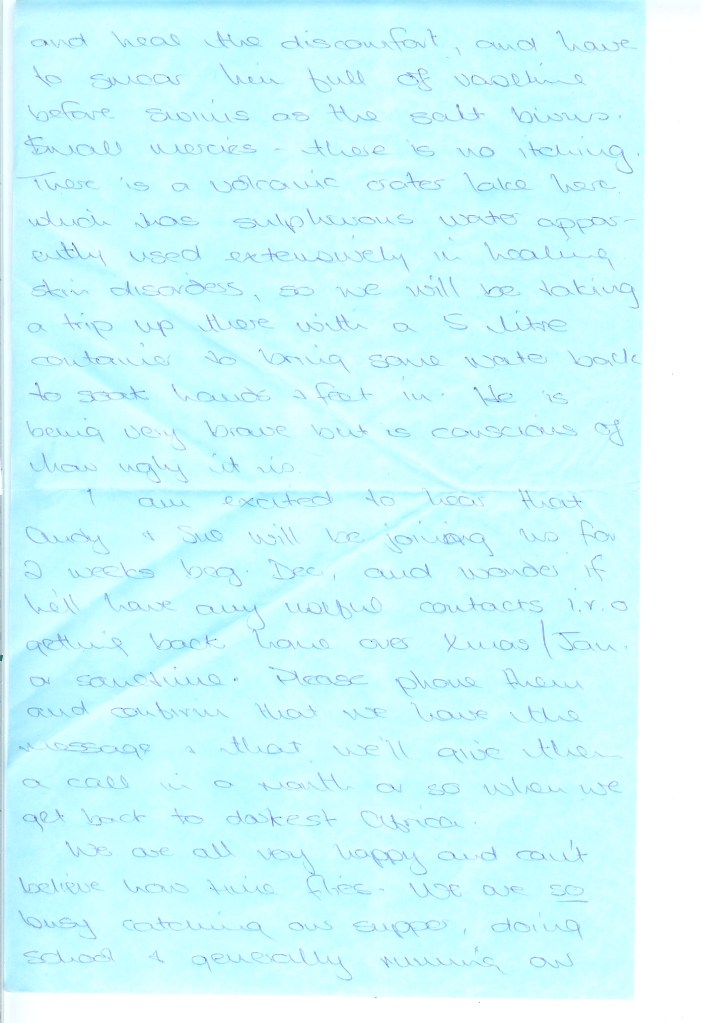 and heal the discomfort, and have
to smear him full of vaseline
before swims as the salt burns.
Small mercies - there is no itching.
There is a volcanic crater lake here
which has sulpherous water appar-
ently used extensively in healing
skin disorders, so we will be taking
a trip up there with a 5 litre
container to bring some water back
to soak hands & feet in. He is
being very brave but is conscious of
how ugly it is.
I am excited to hear that
Andy & Sue will be joining us for
2 weeks beg. Dec, and wonder if
he'll have any useful contacts i.r.o
getting back home over Xmas/Jan.
or sometime. Please phone them
and confirm that we have the
message & that we'll give them
a call in a month or so when we
get back to darkest Africa.
We are all very happy and can't
believe how time flies. We are so
busy catching our supper, doing
school & generally running our